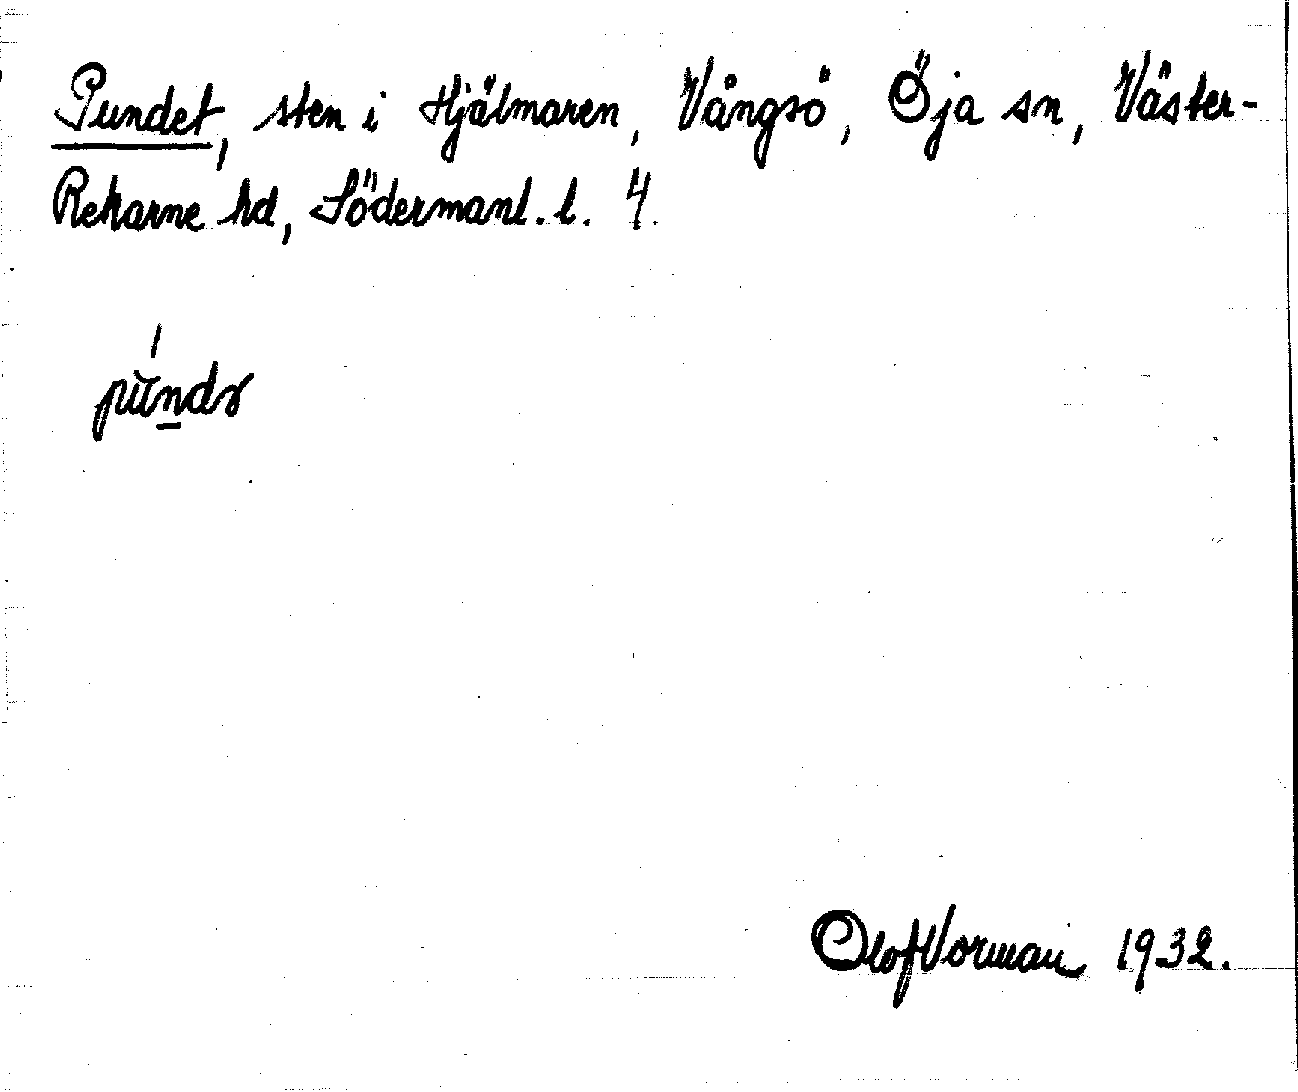 Pundet, sten i Hjälmaren, Vångsö, Öja sn, Väster-
Rekarne hd, Södermanl. l. 4.
pu̇ndə
Olof Vorman 1932.